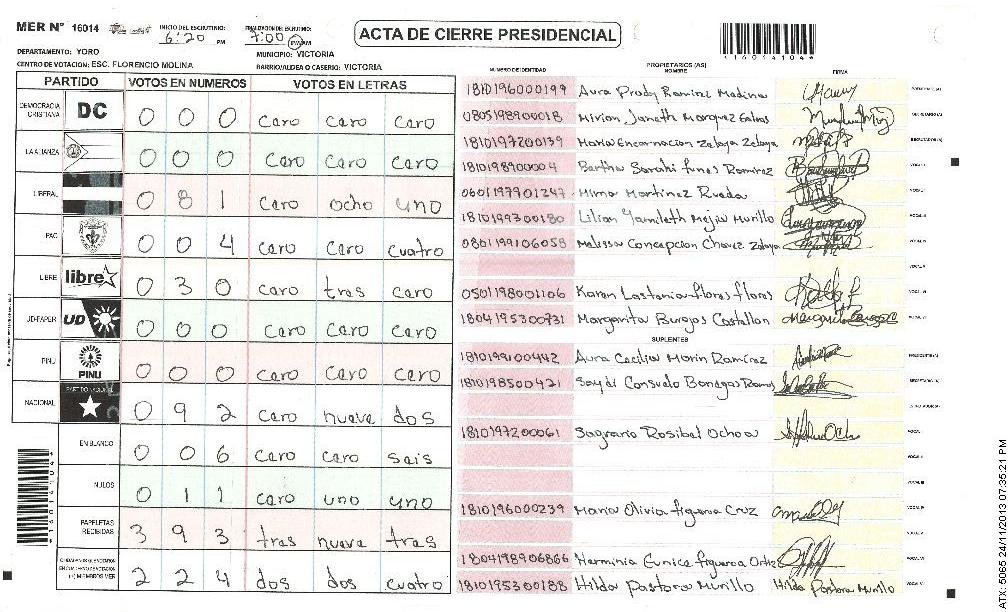 MER N° 16014
INICIO DEL ESCRUTINIO: 6:20 PM
7:00
ACTA DE CIERRE PRESIDENCIAL
*16014104*
DEPARTAMENTO: YORO
MUNICIPIO: VICTORIA
CENTRO DE VOTACION: ESC. FLORENCIO MOLINA
BARRIO/ALDEA O CASERIO: VICTORIA
PARTIDO VOTOS EN NUMEROS VOTOS EN LETRAS
DEMOCRACIA CRISTIANA DC 0 0 0 caro caro caro
LA ALIANZA 0 0 0 caro caro caro
LIBERAL 0 8 1 caro ocho uno
PAC 0 0 4 caro caro cuatro
LIBRE libre 0 3 0 caro tras caro
UD-FAPER UD 0 0 0 caro caro caro
PINU PINU 0 0 0 caro caro caro
NACIONAL PARTIDO NACIONAL 0 9 2 caro nueva dos
EN BLANCO 0 0 6 caro caro sais
NULOS 0 1 1 caro uno uno
PAPELETAS RECIBIDAS 3 9 3 tras nueva tras
(+) MIEMBROS MER 2 2 4 dos dos cuatro
NUMERO DE IDENTIDAD PROPIETARIOS (AS) NOMBRE FIRMA
1810196000199 Aura Prody Ramirez Madina
0805198900018 Mirian Janeth Marquez
1810197200139 Maria Encarnacion Zelaya Zelaya
1810198900004 Bertha Sarahi funes Ramirez
0601197901247 Mirna Martinez Rueda
1810199300180 Lilian Yamileth Mejia Murillo
0801199106058 Melissa Concepcion Chavez Zelaya
0501198001106 Karen Lastenia flores flores
1804195300731 Margarita Burgos Castellon
SUPLENTES
1810199100442 Aura Cecilia Morin Ramirez
1810198500421 Saydi Consuelo Banegas Ramos
1810197200061 Sagrario Rosibel Ochoa
1810196000239 Maria Olivia figueroa Cruz
1804198906866 Herminia Eunice figueroa Ortiz
1810195300188 Hilda Pastora Murillo Hilda Pastora Murillo
*16014104*
ATX-5065 24/11/2013 07:35:21 PM